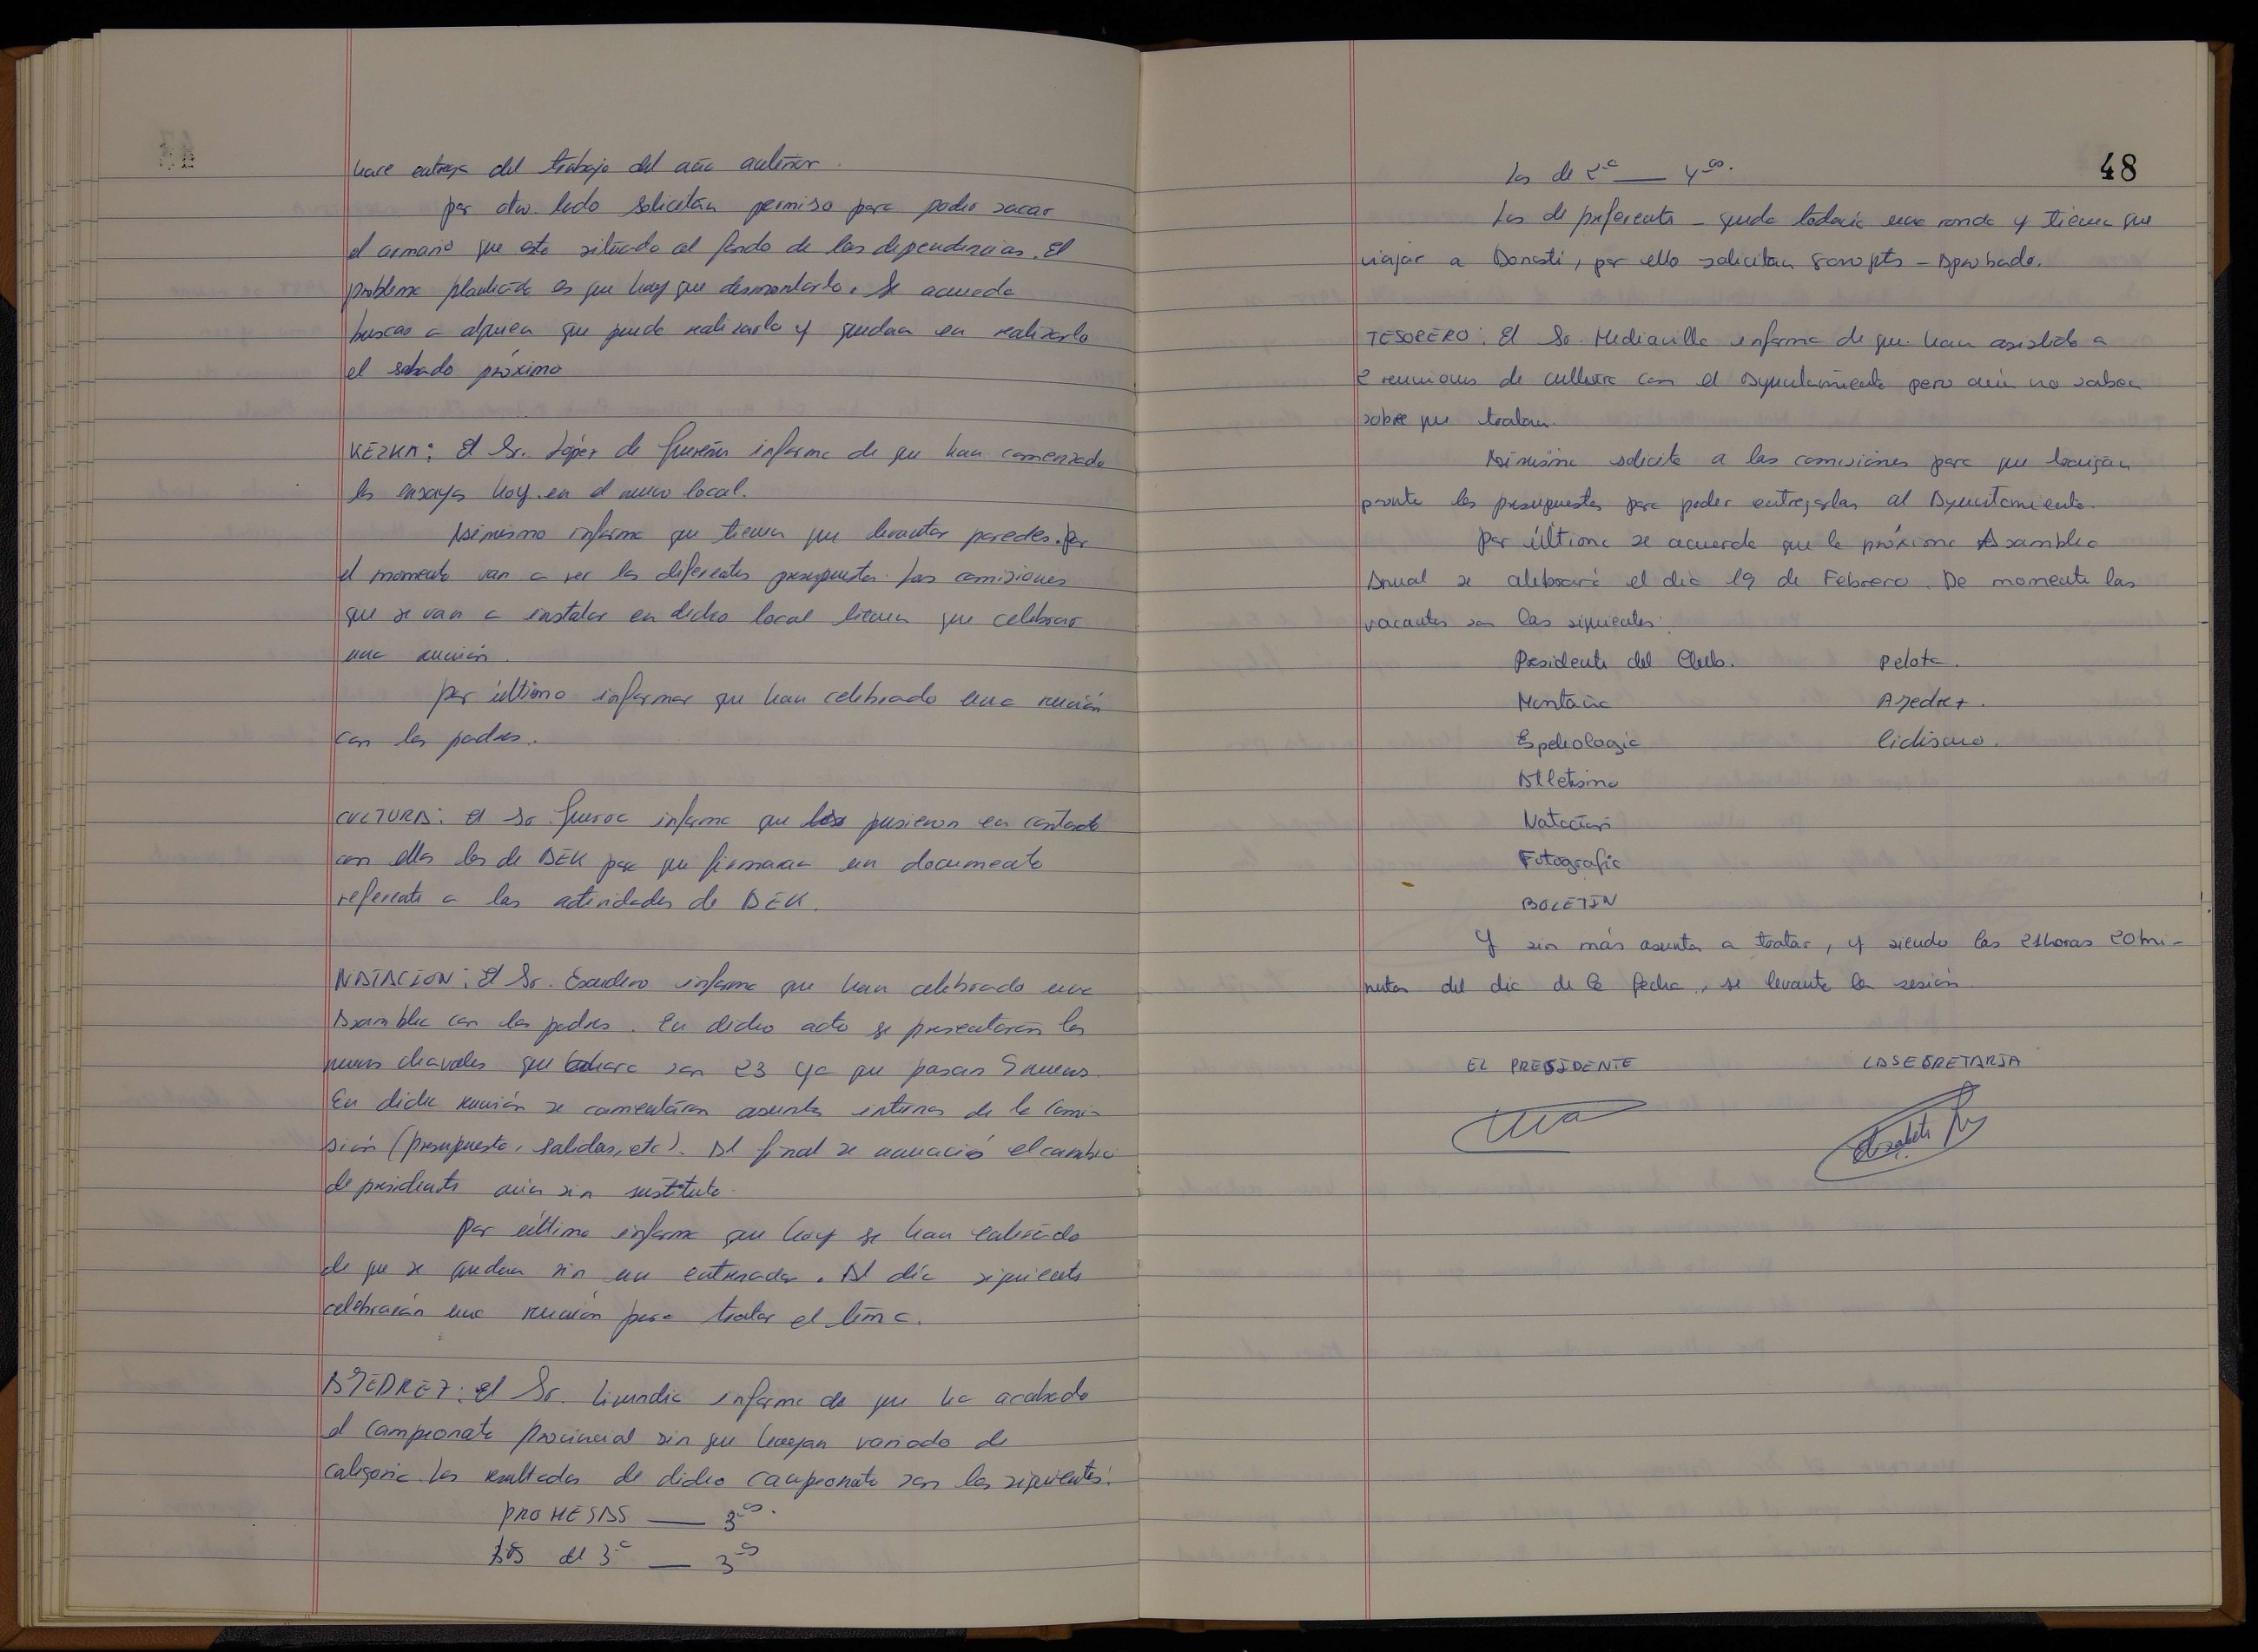 hace entrega del trabajo del año anterior.
por otro lado solicitan permiso para poder sacar
el armario que esta situado al fondo de las dependencias. El
problema planteado es que hay que desmontarlo. Se acuerda
buscar a alguien que pueda realizarlo y quedan en realizarlo
el sabado próximo
KEZKA: El Sr. López de Guereñu informa de que han comenzado
los ensayos hoy en el nuevo local.
Asimismo informa que tienen que levantar paredes. por
el momento van a ver los diferentes presupuestos. Las comisiones
que se van a instalar en dicho local tienen que celebrar
una reunión.
por último informar que han celebrado una reunión
con los padres.
CULTURA: El Sr. informa que pusieron en contacto
con ellos los de AEK para que firmaran un documento
referente a las actividades de AEK.
NATACION: El Sr. Escudero informa que han celebrado una
Asamblea con los padres. En dicho acto se presentarón los
nuevos chavales que ahora son 23 ya que pasan 5 nuevos.
En dicha reunión se comentáron asuntos internos de la Comi-
sión (presupuesto, salidas, etc). Al final se anunció el cambio
de presidente aún sin sustituto.
Por último informa que hoy se han enterado
de que se quedan sin un entrenador. Al día siguiente
celebrarán una reunión para tratar el tema.
AJEDREZ: El Sr. informa de que ha acabado
el Campeonato Provincial sin que hayan variado de
categoria. Los resultados de dicho campeonato son los siguientes:
PROMESAS — 3os.
Los de 3ª — 3os
48
Los de 2ª — 4os.
Los de preferente - queda todavía una ronda y tienen que
viajar a Donosti, por ello solicitan pts - Aprobado.
TESORERO: El Sr. Mediavilla informa de que han asistido a
2 reuniones de cultura con el Ayuntamiento pero aún no saben
sobre que tratan.
Asimismo solicita a las comisiones para que traigan
pronto los presupuestos para poder entregarlos al Ayuntamiento.
Por último se acuerda que la próxima Asamblea
Anual se celebrará el dia 19 de Febrero. De momento las
vacantes son las siguientes:
Presidente del Club. Pelota.
Montaña Ajedrez.
Espeleologia Ciclismo.
Atletismo
Natación
Fotografia
BOLETIN
Y sin más asuntos a tratar, y siendo las 21horas 20mi-
nutos del dia de la fecha, se levanta la sesión.
EL PRESIDENTE LA SECRETARIA